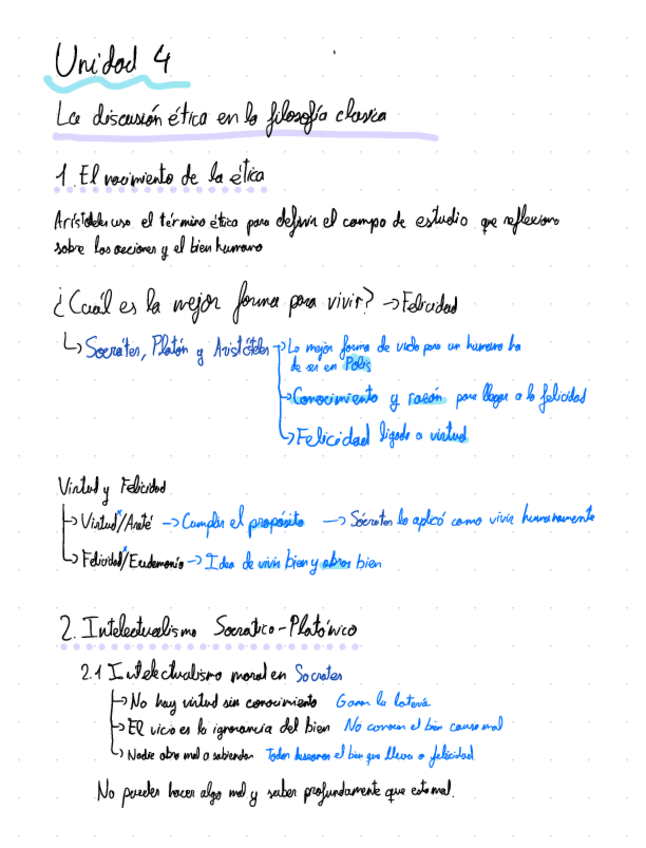 Unidad 4
La discusión ética en la filosofía clasica
1. El nacimiento de la ética
Aristóteles uso el término ética para definir el campo de estudio que reflexiona
sobre las acciones y el bien humano
¿Cuál es la mejor forma para vivir? → Felicidad
↳ Socrátes, Platón y Aristóteles → La mejor forma de vida para un humano ha
de ser en Polis
→ Conocimiento y razón para llegar a la felicidad
↳ Felicidad ligada a virtud
Virtud y Felicidad
→ Virtud/Areté → Cumplir el propósito → Sócrates lo aplicó como vivir humanamente
↳ Felicidad/Eudemonía → Idea de vivir bien y obrar bien
2. Intelectualismo Socratico-Platónico
2.1 Intelectualismo moral en Socrates
→ No hay virtud sin conocimiento Ganar la lotería
→ El vicio es la ignorancia del bien No conocen el bien causa mal
↳ Nadie obra mal a sabiendas Todos deseamos el bien que lleva a felicidad
No puedes hacer algo mal y saber profundamente que esta mal.